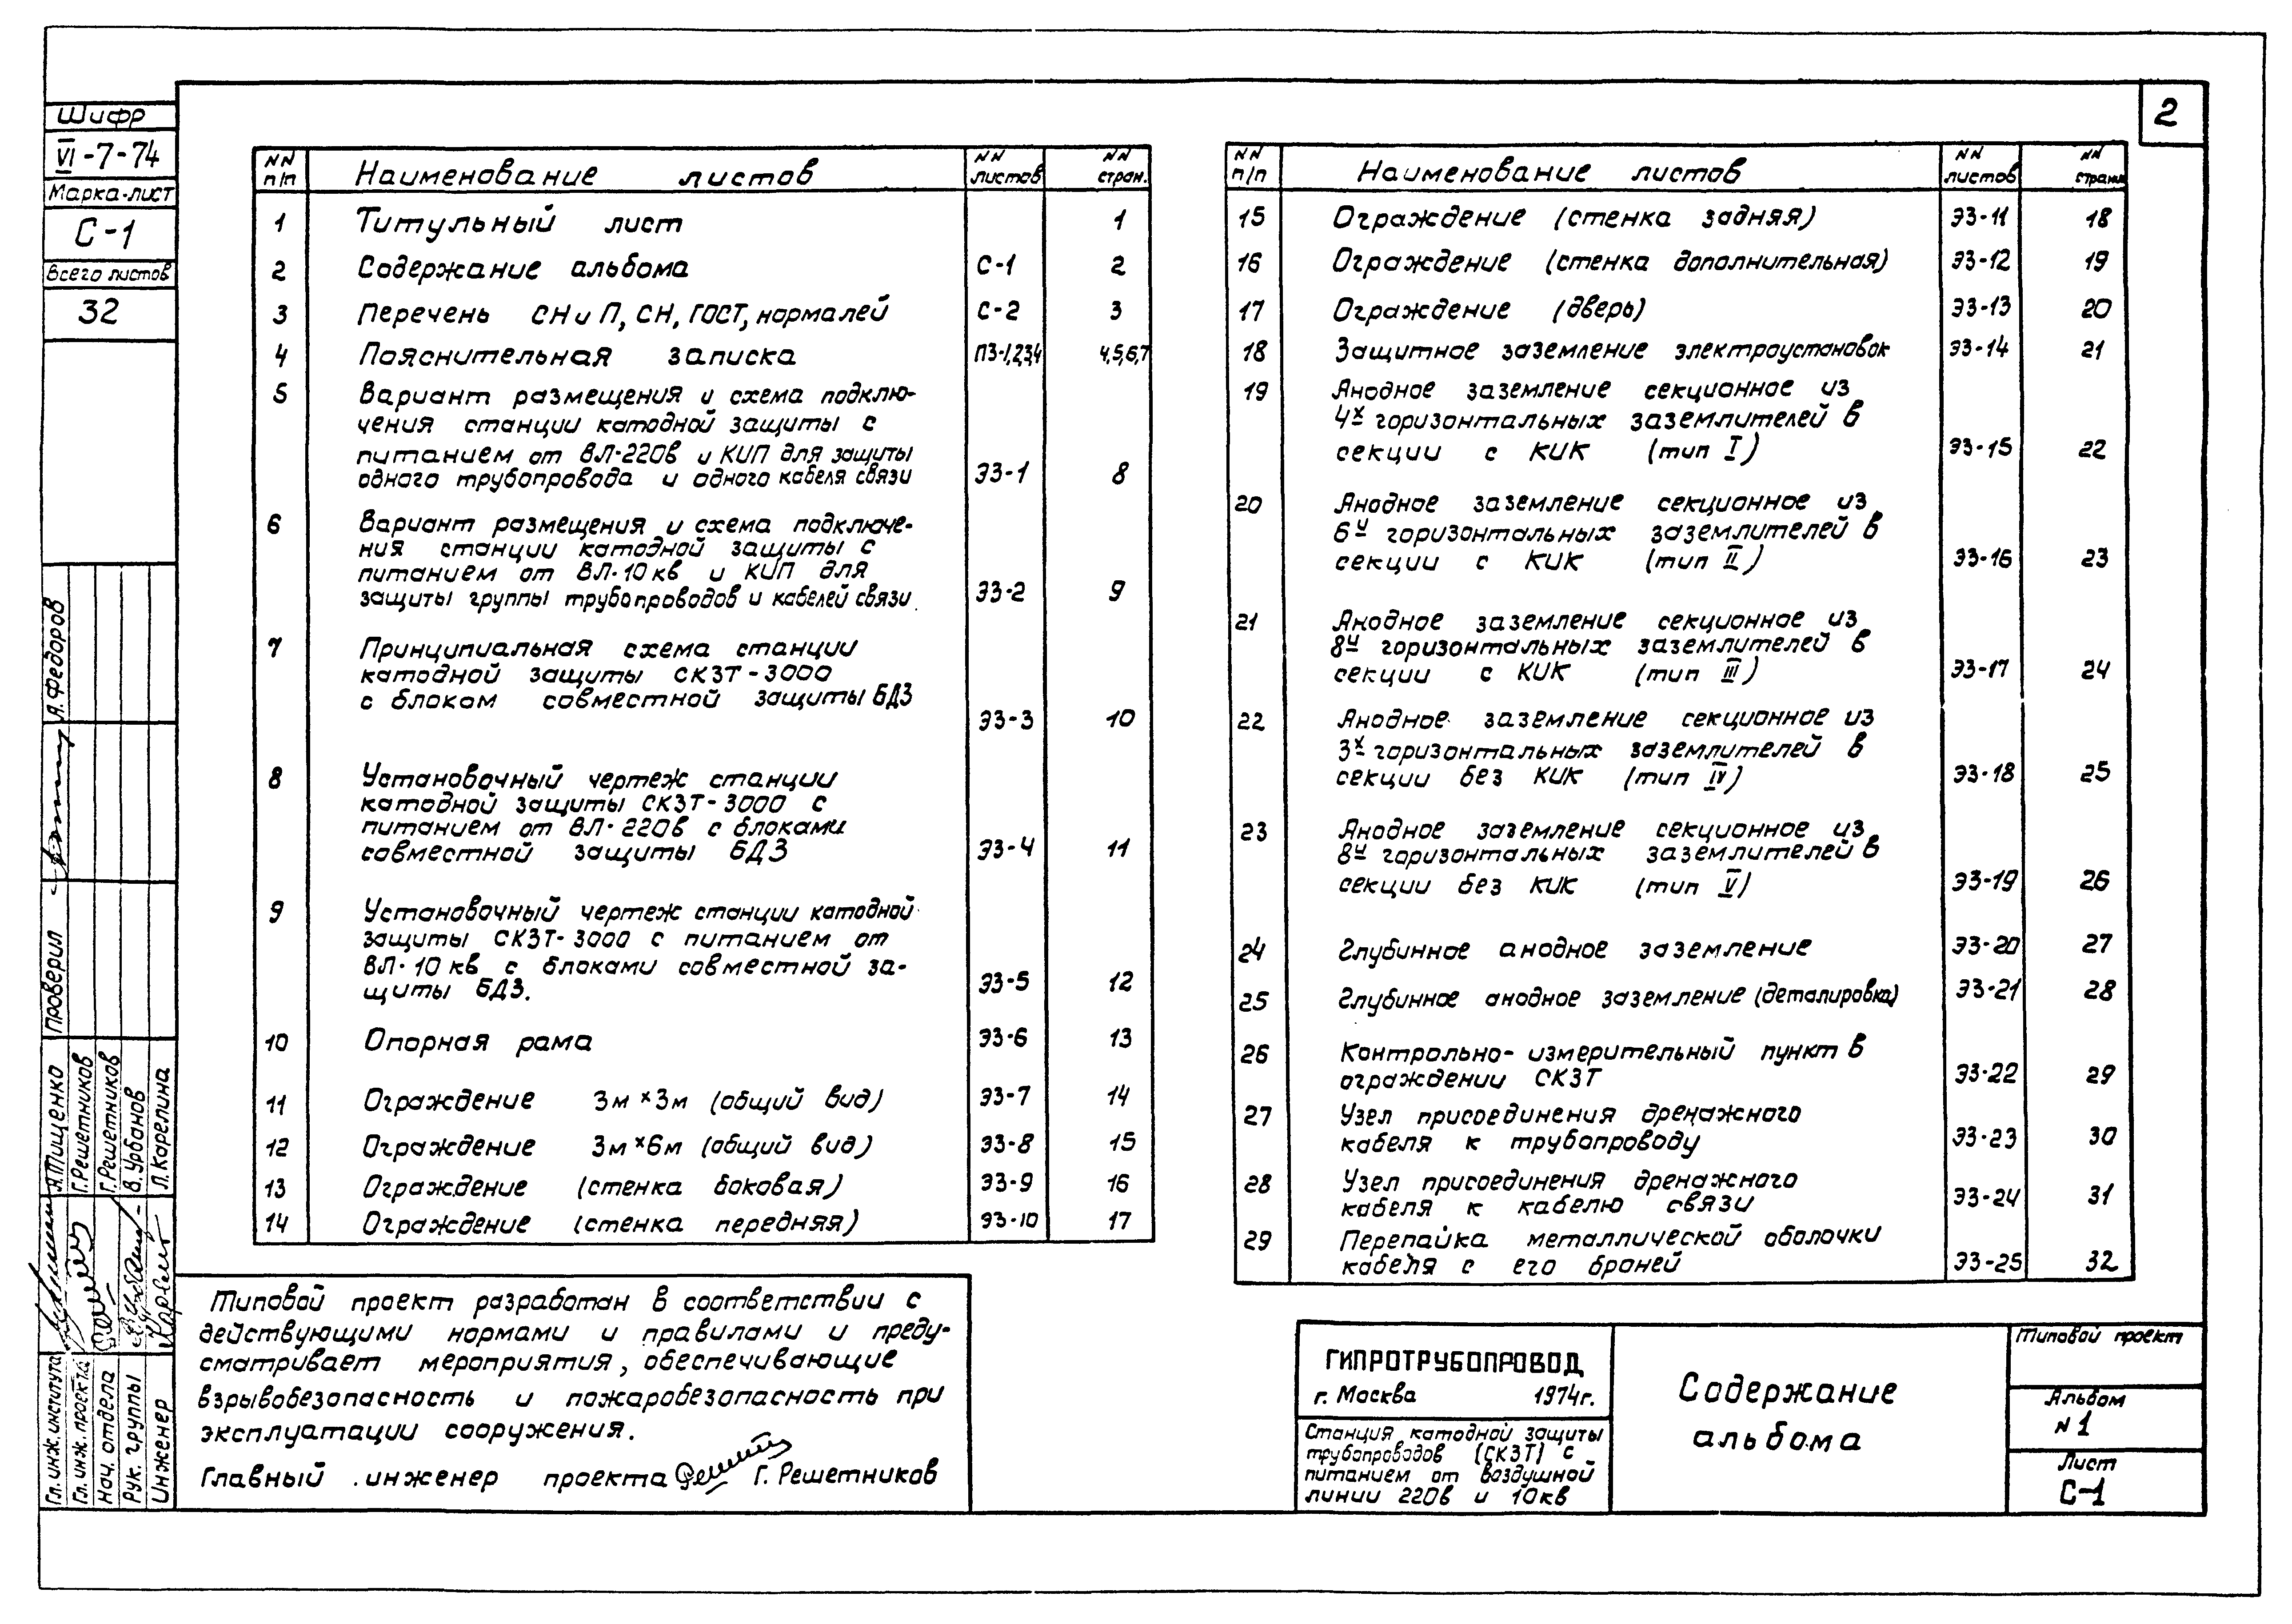 2
Шифр
VI-7-74
Марка-лист
С-1
Всего листов
32
А. Федоров
Проверил
А. Тищенко
Г. Решетников
Г. Решетников
В. Урбанов
Л. Корелина
Гл. инж. института
Гл. инж. проекта
Нач. отдела
Рук. группы
Инженер
NN п/п Наименование листов NN листов NN стран.
1 Титульный лист 1
2 Содержание альбома С-1 2
3 Перечень СНиП, СН, ГОСТ, нормалей С-2 3
4 Пояснительная записка ПЗ-1,2,3,4 4,5,6,7
5 Вариант размещения и схема подклю-
чения станции катодной защиты с
питанием от ВЛ-220в и КИП для защиты
одного трубопровода и одного кабеля связи ЭЗ-1 8
6 Вариант размещения и схема подключе-
ния станции катодной защиты с
питанием от ВЛ-10кв и КИП для
защиты группы трубопроводов и кабелей связи. ЭЗ-2 9
7 Принципиальная схема станции
катодной защиты СКЗТ-3000
с блокам совместной защиты БДЗ
ЭЗ-3 10
8 Установочный чертеж станции
катодной защиты СКЗТ-3000 с
питанием от ВЛ-220в с блоками
совместной защиты БДЗ ЭЗ-4 11
9 Установочный чертеж станции катодной
защиты СКЗТ-3000 с питанием от
ВЛ-10кв с блоками совместной за-
щиты БДЗ. ЭЗ-5 12
10 Опорная рама ЭЗ-6 13
11 Ограждение 3м×3м (общий вид) ЭЗ-7 14
12 Ограждение 3м×6м (общий вид) ЭЗ-8 15
13 Ограждение (стенка боковая) ЭЗ-9 16
14 Ограждение (стенка передняя) ЭЗ-10 17
NN п/п Наименование листов NN листов NN страниц
15 Ограждение (стенка задняя) ЭЗ-11 18
16 Ограждение (стенка дополнительная) ЭЗ-12 19
17 Ограждение (дверь) ЭЗ-13 20
18 Защитное заземление электроустановок ЭЗ-14 21
19 Анодное заземление секционное из
4х горизонтальных заземлителей в
секции с КИК (тип I) ЭЗ-15 22
20 Анодное заземление секционное из
6и горизонтальных заземлителей в
секции с КИК (тип II) ЭЗ-16 23
21 Анодное заземление секционное из
8и горизонтальных заземлителей в
секции с КИК (тип III) ЭЗ-17 24
22 Анодное заземление секционное из
3х горизонтальных заземлителей в
секции без КИК (тип IV) ЭЗ-18 25
23 Анодное заземление секционное из
8и горизонтальных заземлителей в
секции без КИК (тип V) ЭЗ-19 26
24 Глубинное анодное заземление ЭЗ-20 27
25 Глубинное анодное заземление (деталировка) ЭЗ-21 28
26 Контрольно-измерительный пункт в
ограждении СКЗТ ЭЗ-22 29
27 Узел присоединения дренажного
кабеля к трубопроводу ЭЗ-23 30
28 Узел присоединения дренажного
кабеля к кабелю связи ЭЗ-24 31
29 Перепайка металлической оболочки
кабеля с его броней ЭЗ-25 32
Типовой проект разработан в соответствии с
действующими нормами и правилами и преду-
сматривает мероприятия, обеспечивающие
взрывобезопасность и пожаробезопасность при
эксплуатации сооружения.
Главный инженер проекта Г. Решетников
ГИПРОТРУБОПРОВОД
г. Москва 1974г.
Станция катодной защиты
трубопроводов (СКЗТ) с
питанием от воздушной
линии 220в и 10кв
Содержание
альбома
Типовой проект
Альбом
N 1
Лист
С-1